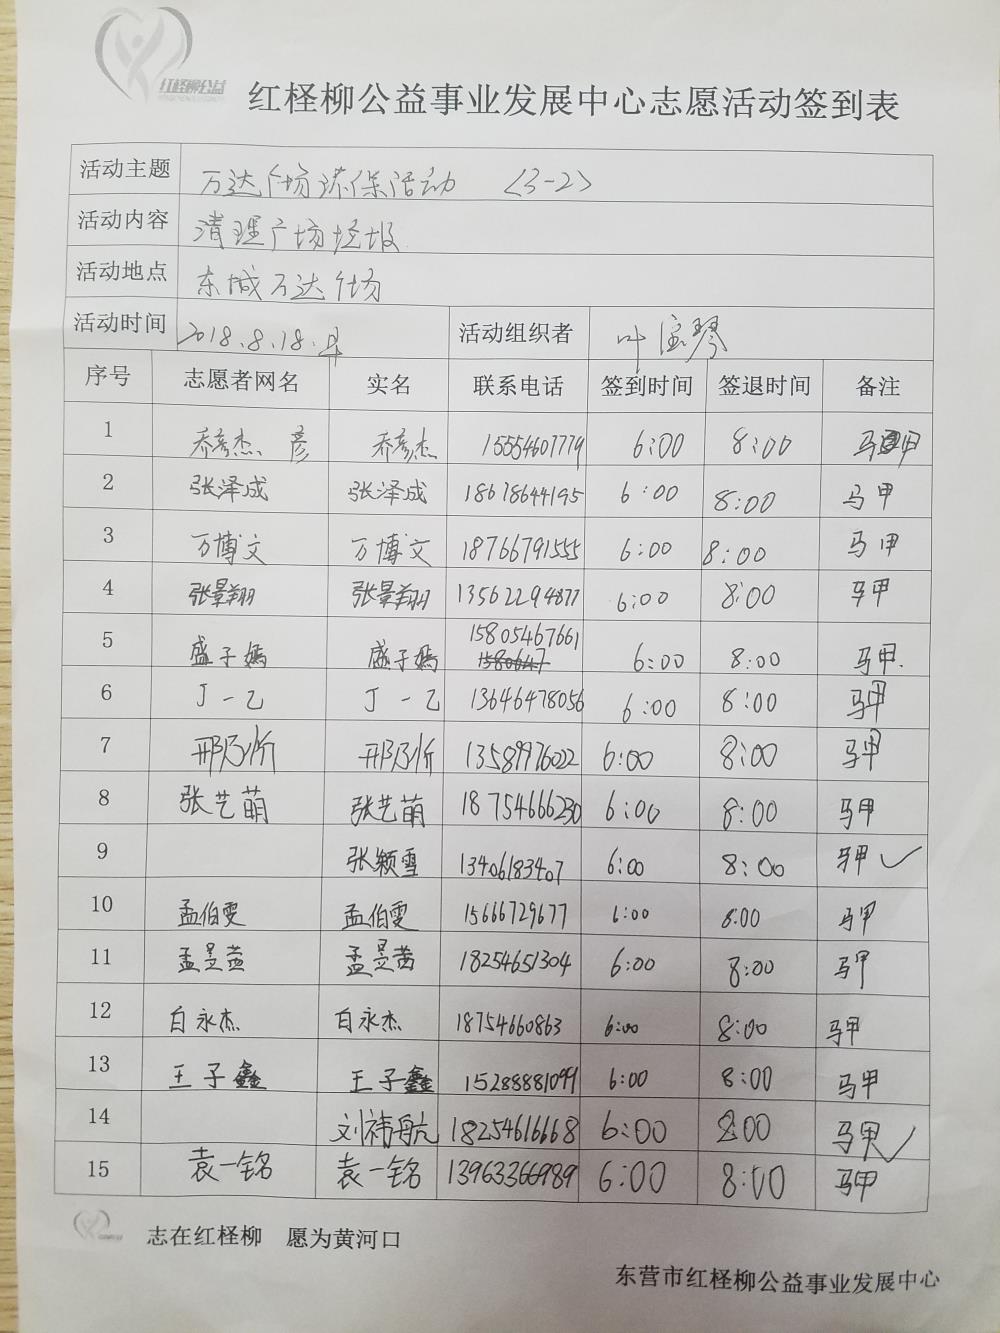 红柽柳公益
红柽柳公益事业发展中心志愿活动签到表
活动主题 万达广场环保活动 <3-2>
活动内容 清理广场垃圾
活动地点 东城万达广场
活动时间 2018.8.18.早 活动组织者 叶宝琴
序号 志愿者网名 实名 联系电话 签到时间 签退时间 备注
1 乔彦杰、彦 乔彦杰 15554607779 6:00 8:00 马甲
2 张泽成 张泽成 18678644195 6:00 8:00 马甲
3 万博文 万博文 18766791555 6:00 8:00 马甲
4 张景翔 张景翔 13562294877 6:00 8:00 马甲
5 盛子嫣 盛子嫣 15805467661 1580647 6:00 8:00 马甲.
6 丁一乙 丁一乙 13646478056 6:00 8:00 马甲
7 邢乃忻 邢乃忻 13589976022 6:00 8:00 马甲
8 张艺萌 张艺萌 18754666230 6:00 8:00 马甲
9 张颖雪 13406183407 6:00 8:00 马甲✓
10 孟伯雯 孟伯雯 15666729677 6:00 8:00 马甲
11 孟昱茜 孟昱茜 18254651304 6:00 8:00 马甲
12 白永杰 白永杰 18754660863 6:00 8:00 马甲
13 王子鑫 王子鑫 15288881099 6:00 8:00 马甲
14 刘祎航 18254616668 6:00 8:00 马甲✓
15 袁一铭 袁一铭 13963366989 6:00 8:00 马甲
志在红柽柳 愿为黄河口
东营市红柽柳公益事业发展中心